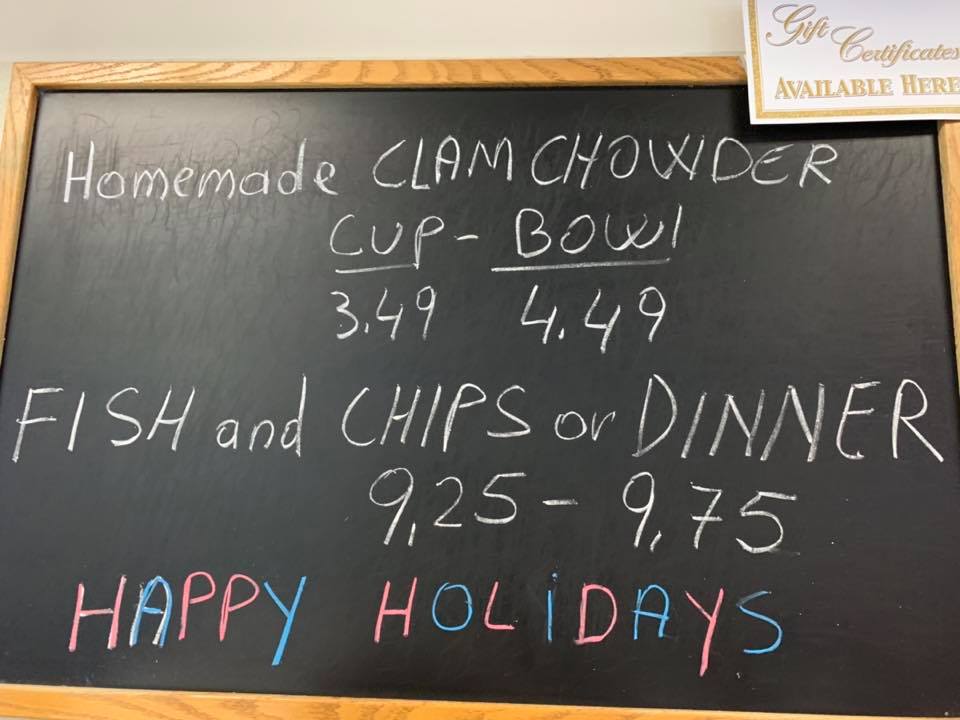 Gift
Certificates
AVAILABLE HERE
Homemade CLAM CHOWDER
CUP - BOWl
3.49 4.49
FISH and CHIPS or DINNER
9,25 - 9,75
HAPPY HOLiDAYS